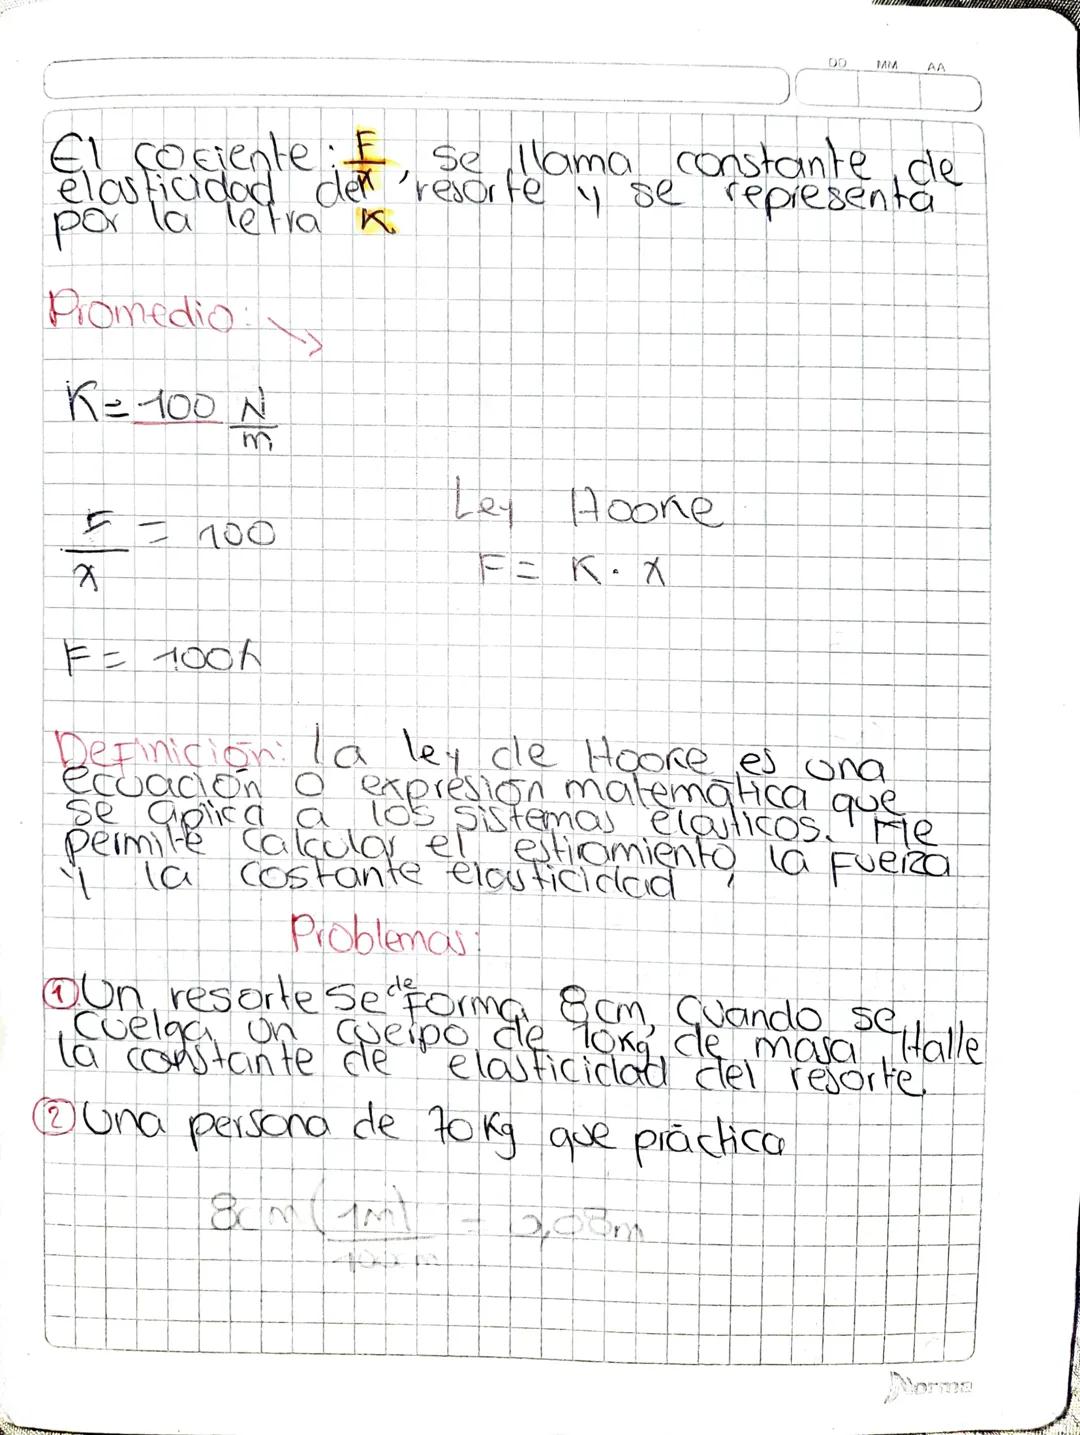 DD MM AA
El cociente: F/x, se llama constante de
elasticidad del resorte y se representa
por la letra K
Promedio:
K = 100 N/m
F/x = 100
Ley Hooke
F = K · x
F = 100x
Definición: la ley de Hooke es una
ecuación o expresión matemática que
se aplica a los sistemas elasticos. Me
permite calcular el estiramiento, la fuerza
y la costante elasticidad
Problemas:
① Un resorte se deforma 8cm, Cuando se
cuelga un cuerpo de 10kg de masa, Halle
la constante de elasticidad del resorte.
② Una persona de 70 Kg que práctica
8cm (1m)/100cm = 0,08m
Norma